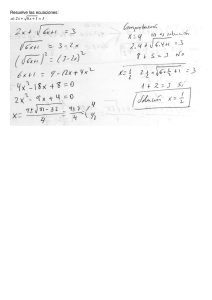 Resuelve las ecuaciones:
a) 2x + √6x+1 = 3
2x + √6x+1 = 3
√6x+1 = 3-2x
(√6x+1)² = (3-2x)²
6x+1 = 9-12x+4x²
4x²-18x+8=0
2x²-9x+4=0
x= 9±√81-32 / 4 = 9±7 / 4 = 4 1/2
Comprobación
x=4 No es solución
2·4+√6·4+1 = 3
8+5=3 No
x=1/2 2·1/2+√6·1/2+1 = 3
1+2=3 Sí
Solución x=1/2